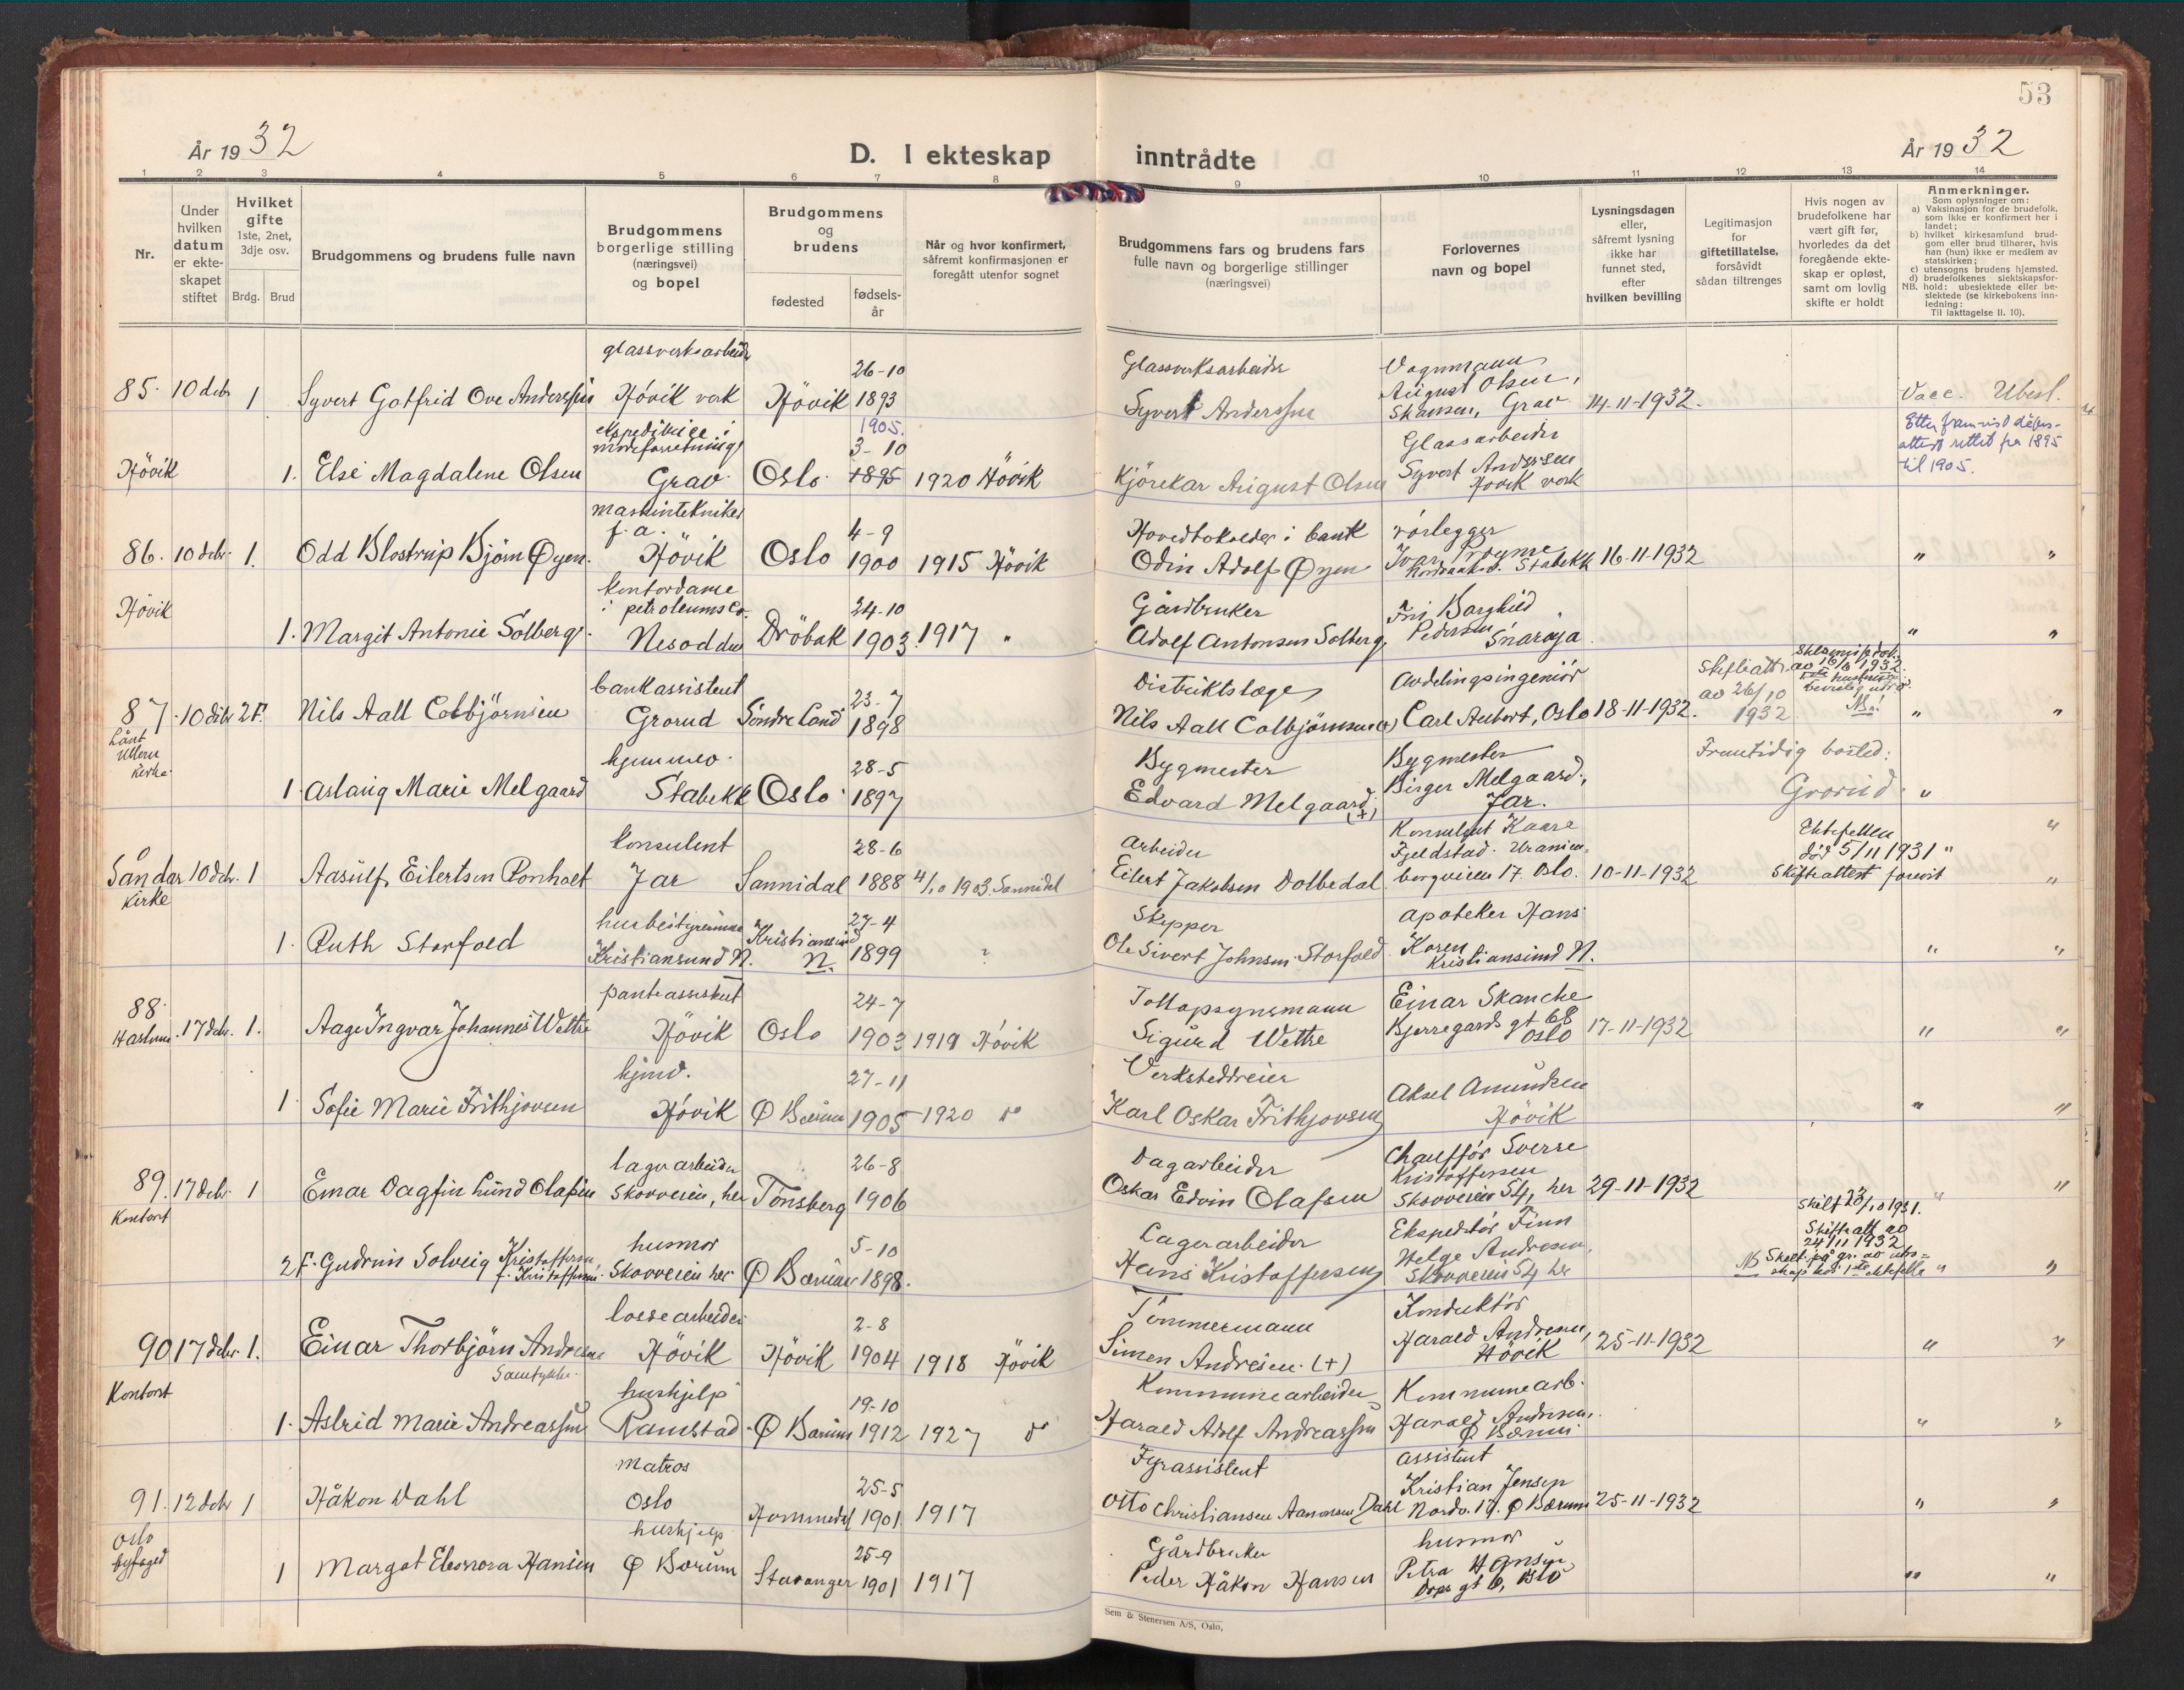 53
År 1932
D. I ekteskap inntrådte
År 1932
1 2 3 4 5 6 7 8 9 10 11 12 13 14
Nr.
Under hvilken datum er ekteskapet stiftet
Hvilket gifte 1ste, 2net, 3dje osv.
Brdg. Brud
Brudgommens og brudens fulle navn
Brudgommens borgerlige stilling (næringsvei) og bopel
Brudgommens og brudens
fødested
fødselsår
Når og hvor konfirmert, såfremt konfirmasjonen er foregått utenfor sognet
Brudgommens fars og brudens fars fulle navn og borgerlige stillinger (næringsvei)
Forlovernes navn og bopel
Lysningsdagen eller, såfremt lysning ikke har funnet sted, efter hvilken bevilling
Legitimasjon for giftetillatelse, forsåvidt sådan tiltrenges
Hvis nogen av brudefolkene har vært gift før, hvorledes da det foregående ekteskap er opløst, samt om lovlig skifte er holdt
Anmerkninger.
Som oplysninger om:
a) Vaksinasjon for de brudefolk, som ikke er konfirmert her i landet;
b) hvilket kirkesamfund brudgom eller brud tilhører, hvis han (hun) ikke er medlem av statskirken;
c) utensogns brudens hjemsted.
d) brudefolkenes slektskapsforhold: ubeslektede eller beslektede (se kirkebokens innledning:
NB. Til iakttagelse II. 10).
glassverksarbeider 26-10 Glassverksarbeider Vognmann
85. 10 debr 1 Syvert Gotfrid Ove Anderssen Høvik verk Høvik 1893 Syvert Anderssen August Olsen, Skansen, Grav 14-11-1932. Vacc. Ubesl.
ekspeditrice i moteforretning 1905. 3-10 Glassarbeider Etter framvist dåpsattest rettet fra 1895 til 1905.
Høvik 1. Else Magdalene Olsen Grav Oslo 1895 1920 Høvik Kjørekar August Olsen Syvert Andersen Høvik verk
maskintekniker f.a. 4-9 Hovedbokholder i bank rørlegger
86. 10 debr. 1. Odd Blostrup Bjørn Øyen. Høvik Oslo 1900 1915 Høvik Odin Adolf Øyen Ivar Stabekk 16-11-1932 " "
kontordame i petroleums Co. 24-10 Gårdbruker Frk Borghild
Høvik 1. Margit Antonie Solberg. Nesodden Drøbak 1903. 1917 " Adolf Antonsen Solberg Pedersen Snarøya " "
bankassistent 23-7 Distriktslæge Avdelingsingeniør Skifteatt. av 26/10 1932 av 16/6 1932.
87. 10 debr 2 F. Nils Aall Colbjørnsen Grorud Søndre Land 1898 Nils Aall Colbjørnsen (+) Carl Aubert, Oslo 18-11-1932. " "
Lånt Ullern kirke. hjemmev. 28-5 Bygmester Bygmester Fremtidig bosted:
1. Aslaug Marie Melgaard Stabekk Oslo 1897 Edvard Melgaard (+) Birger Melgaard, Jar. Grorud "
konsulent 28-6 Arbeider Konsulent Kaare Ektefellen "
Sandar kirke 10 debr. 1 Aasulf Eilertsen Ronholt Jar Sannidal 1888 4/10 1903 Sannidal Eilert Jakobsen Dolbedal Fjeldstad. Uranienborgveien 17. Oslo. 10-11-1932 død 5/11 1931 Skifteattest forevist "
husbestyrerinne 27-4 Skipper Apoteker Hans
1. Ruth Storfold Kristiansund N. Kristiansund N. 1899 ? Ole Sivert Johnsen Storfold Koren Kristiansund N. " "
panteassistent 24-7 Tollopsynsmann Einar Skanche
88. Haslum. 17 debr. 1. Aage Ingvar Johannes Wettre Høvik Oslo 1903 1919 Høvik Sigurd Wettre Bjerregards gt 68 Oslo 17-11-1932 " "
hjmv. 27-11 Verkstedeier Aksel Amundsen
1 Sofie Marie Frithjovsen Høvik Ø Bærum 1905 1920 do Karl Oskar Frithjovsen Høvik " "
lagerarbeider 26-8 Dagarbeider Chauffør Sverre
89. 17 debr. 1 Einar Dagfin Lund Olafsen Skovveien, her Tønsberg 1906 Oskar Edvin Olafsen Kristoffersen Skovveien 54, her 29-11-1932 " "
Kontort husmor 5-10 Lagerarbeider Ekspeditør Finn Skilt 23/10 1931. Skifteatt av 24/11 1932
2 F. Gudrun Solveig Kristoffersen, f. Kristoffersen. Skovveien her Ø Bærum 1898. Hans Kristoffersen Helge Andresen, Skovveien 54 her NB Skilt på gr. av utroskap hos 1ste ektefelle " "
lossearbeider 2-8 Tømmermann Konduktør
90 17 debr. 1. Einar Thorbjørn Andresen Høvik Høvik 1904 1918 Høvik Simen Andresen. (+) Harald Andresen, Høvik 25-11-1932 " "
Samtykke.
Kontort hushjelp 19-10 Kommunearbeider Kommunearb.
1. Astrid Marie Andreassen Ramstad Ø Bærum 1912 1927 do Harald Adolf Andreassen Harald Andresen, Ø Bærum " "
matros 25-5 Fyrassistent assistent
91. 12 debr 1 Håkon Dahl Oslo Hommedal 1901 1917 Otto Christiansen Aanonsen Dahl Kristian Jensen Nordv. 19. Ø Bærum 25-11-1932 " "
Oslo byfoged hushjelp 25-9 Gårdbruker husmor
1 Margot Eleonora Hansen Ø Bærum Stavanger 1901 1917 Peder Håkon Hansen Petra Hansen, gt 6, Oslo " "
Sem & Stenersen A/S, Oslo,